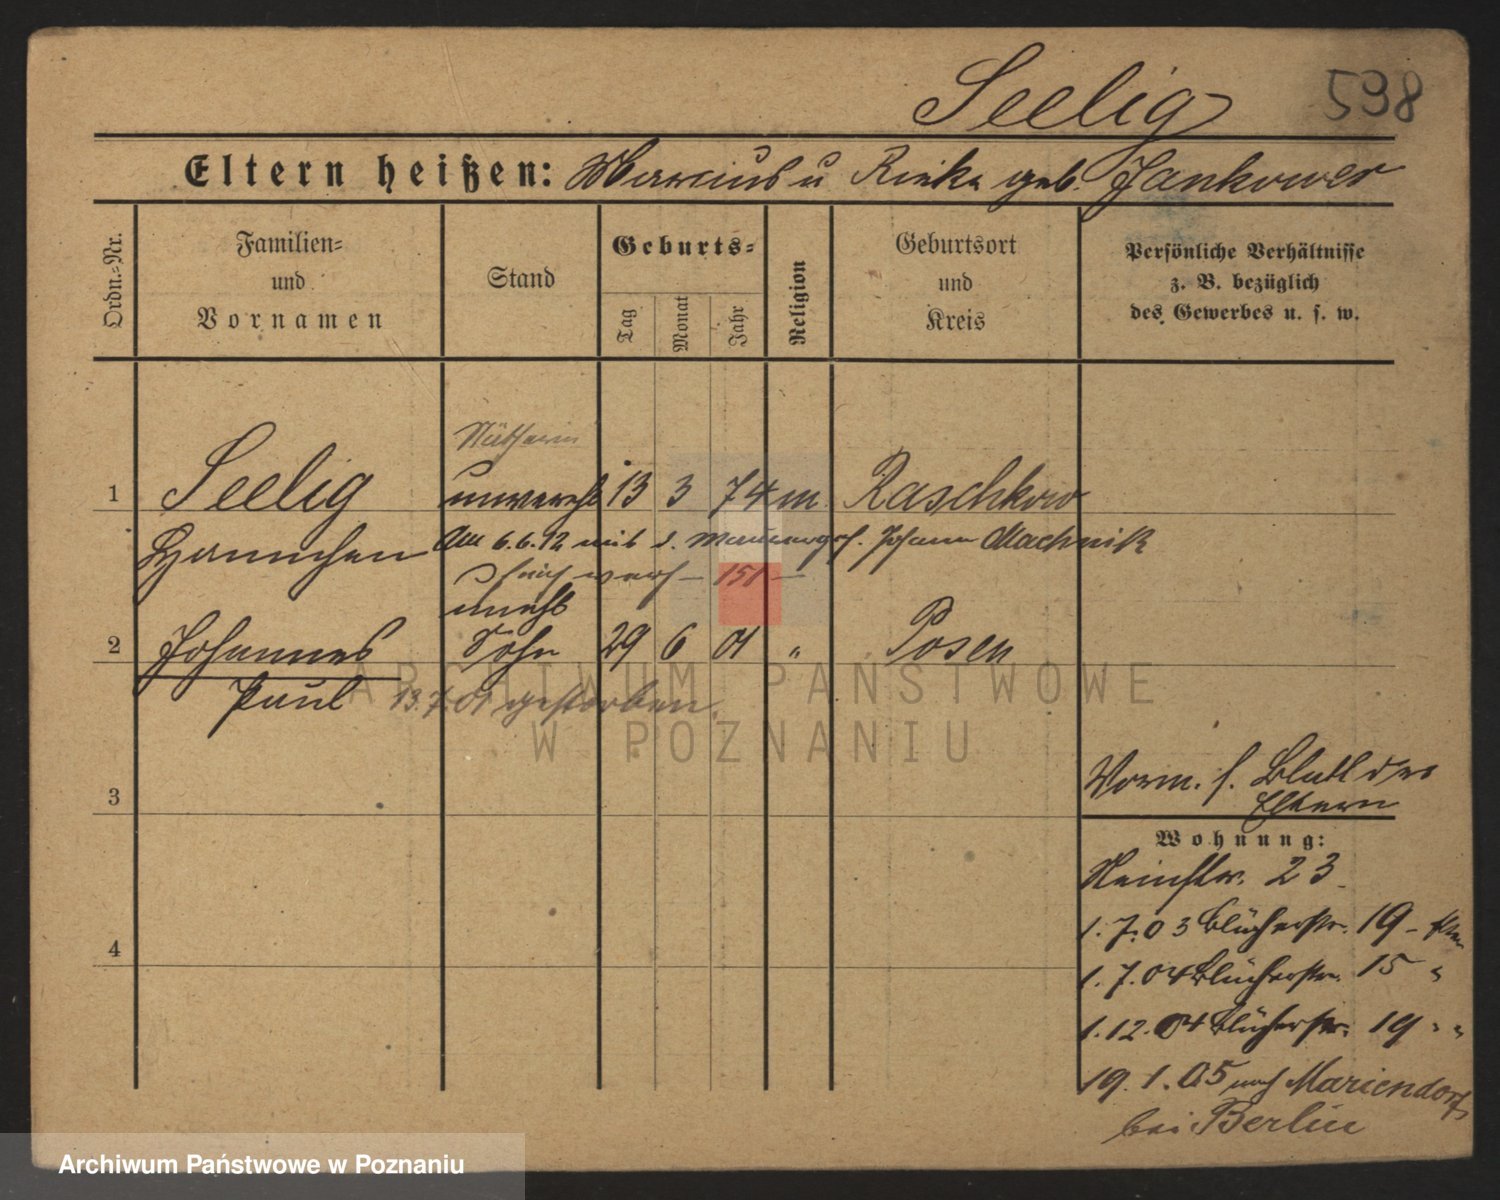 Seelig 598
Eltern heißen: Marcus u Rieke geb. Jankower
Ordn.=Nr.
Familien=
und
Vornamen
Stand
Geburts=
Tag
Monat
Jahr
Religion
Geburtsort
und
Kreis
Persönliche Verhältnisse
z. B. bezüglich
des Gewerbes u. s. w.
Nätherin
1 Seelig unverehl 13 3 74 m. Raschkow
Hannchen
Am 6.6.12 mit d. Maurerges. Johann Machnik
hier verh – 151 –
unehl
2 Johannes Sohn 29 6 01 " Posen
Paul 13.7.01 gestorben.
3
4
Vorm. s. Blatt der
Eltern
Wohnung:
23
1. 7. 03 Blücherstr. 19 -
1. 7. 04 Blücherstr. 15 "
1. 12. 04 Blücherstr. 19 " "
19. 1. 05 nach Mariendorf
bei Berlin
ARCHIWUM PAŃSTWOWE
W POZNANIU
Archiwum Państwowe w Poznaniu